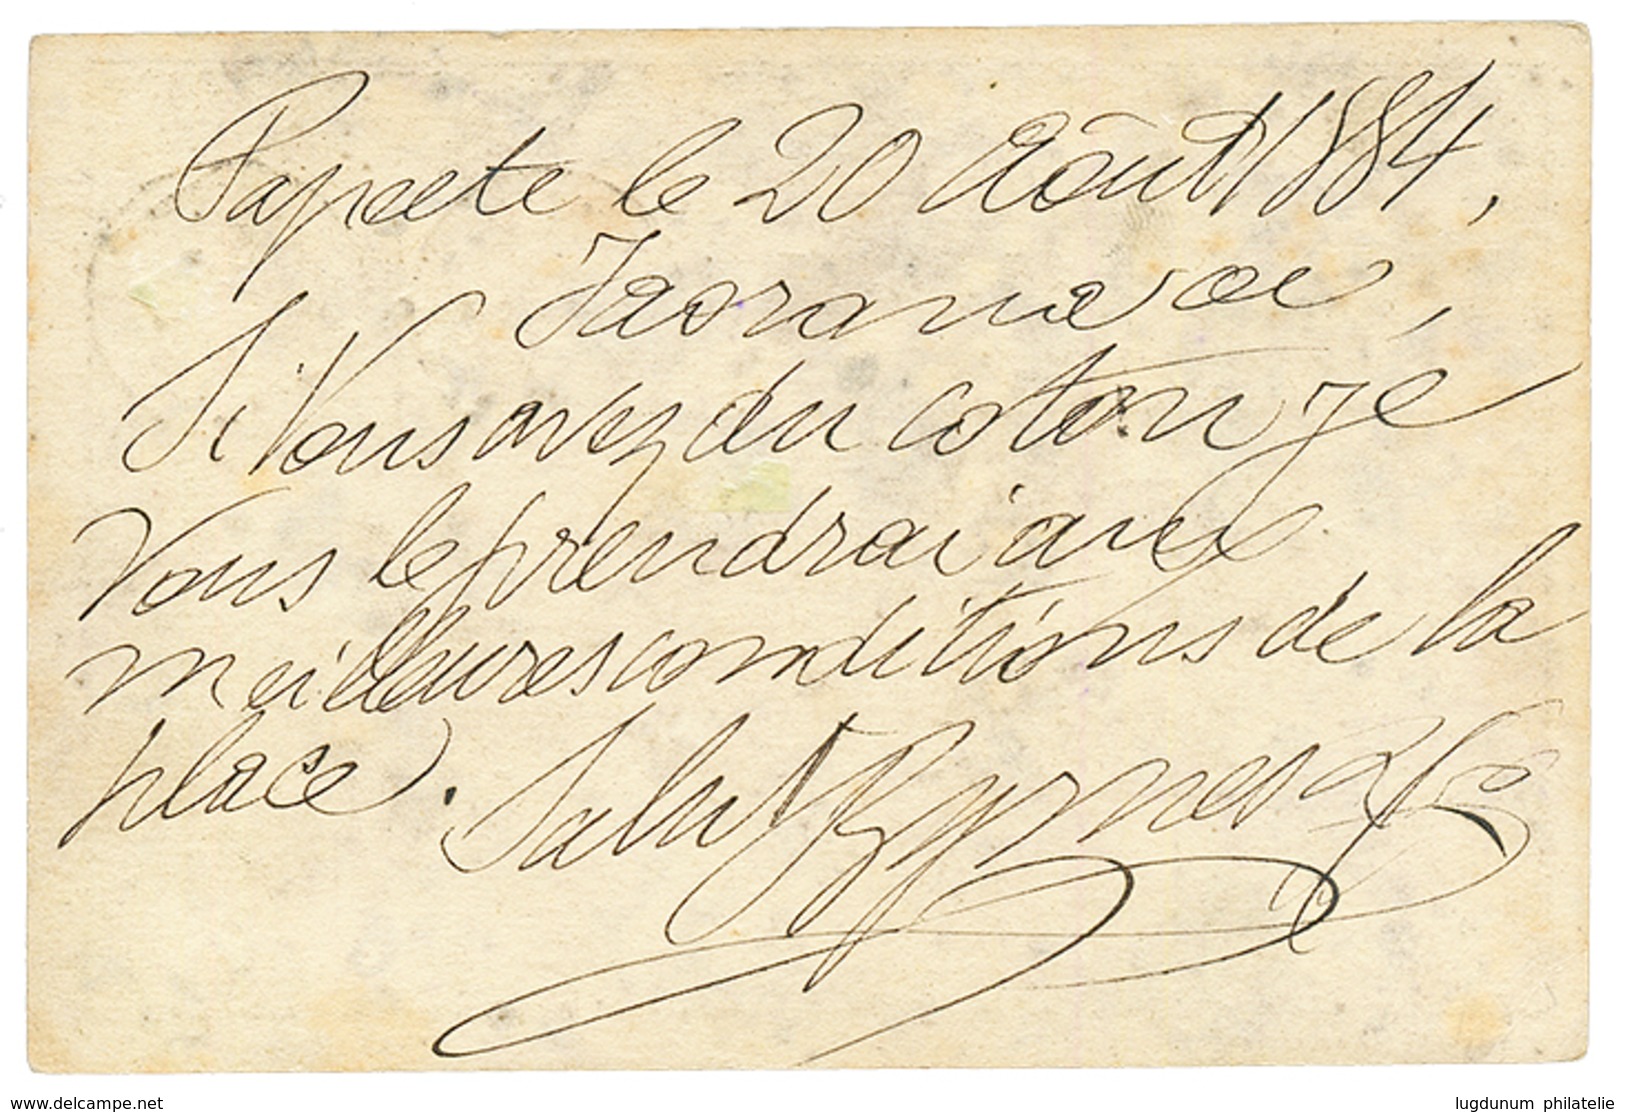 Papeete le 20 Août 1884,
Iaorana oe,
Si Vous avez du coton je
Vous le prendrai aux
meilleures conditions de la
place. Salut
www.delcampe.net
lugdunum philatelie